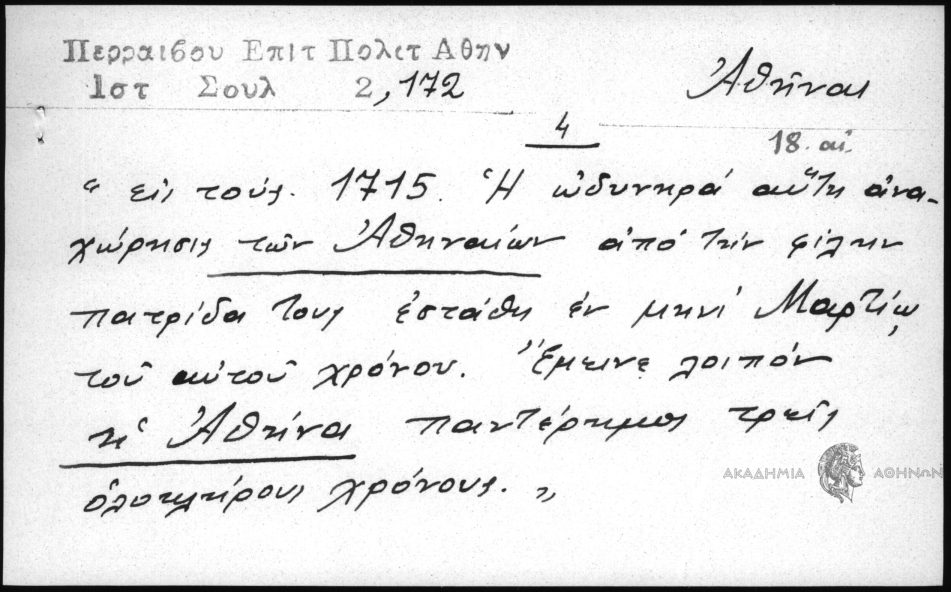 Περραιβου Επιτ Πολιτ Αθην
Ιστ Σουλ 2,172
Ἀθῆναι
4
18. αἰ.
" εἰς τούς. 1715. Ἡ ὠδυνηρά αὕτη ἀνα-
χώρησις τῶν Ἀθηναίων ἀπό τήν φίλην
πατρίδα τους ἐστάθη ἐν μηνί Μαρτίῳ
τοῦ αὐτοῦ χρόνου. Ἔμεινε λοιπόν
ἡ Ἀθήνα παντέρημος τρεῖς
ὁλοκλήρους χρόνους. „
ΑΚΑΔΗΜΙΑ ΑΘΗΝΩΝ